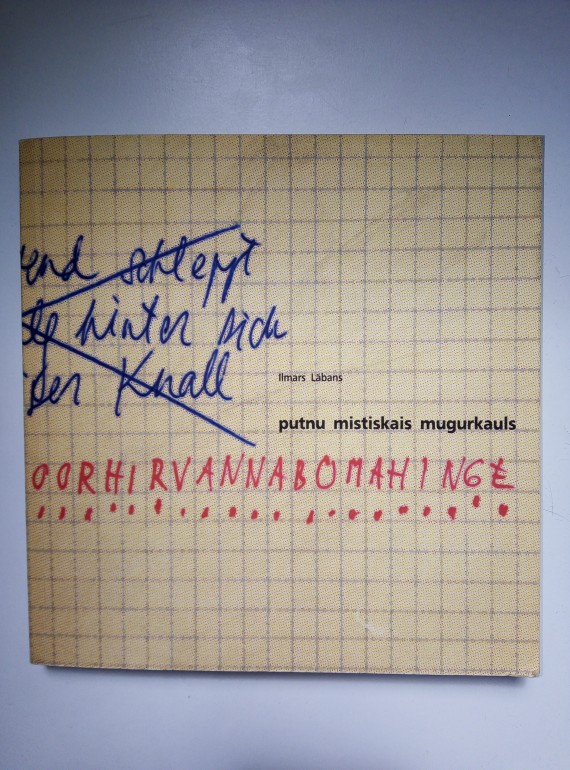 end schleppt
hinter sich
Knall
Ilmars Lābans
putnu mistiskais mugurkauls
OORHIRVANNABOMAHINGE